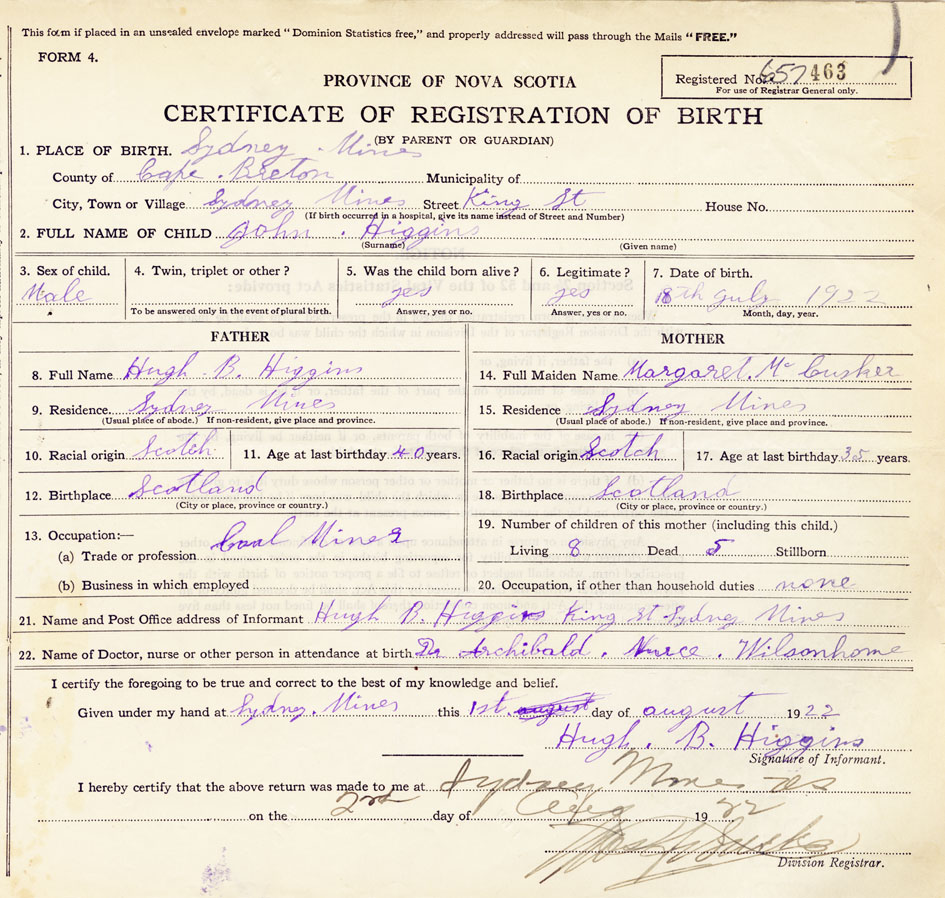 This form if placed in an unsealed envelope marked "Dominion Statistics free," and properly addressed will pass through the Mails "FREE."
FORM 4.
PROVINCE OF NOVA SCOTIA
Registered No. 657463
For use of Registrar General only.
CERTIFICATE OF REGISTRATION OF BIRTH
(BY PARENT OR GUARDIAN)
1. PLACE OF BIRTH. Sydney Mines
County of Cape Breton Municipality of
City, Town or Village Sydney Mines Street King St House No.
(If birth occurred in a hospital, give its name instead of Street and Number)
2. FULL NAME OF CHILD John . Higgins
(Surname) (Given name)
3. Sex of child. 4. Twin, triplet or other? 5. Was the child born alive? 6. Legitimate? 7. Date of birth.
Male yes yes 18th July 1922
To be answered only in the event of plural birth. Answer, yes or no. Answer, yes or no. Month, day, year.
FATHER MOTHER
8. Full Name Hugh B. Higgins 14. Full Maiden Name Margaret. Mc Cusker
9. Residence. Sydney Mines 15. Residence Sydney Mines
(Usual place of abode.) If non-resident, give place and province. (Usual place of abode.) If non-resident, give place and province.
10. Racial origin Scotch 11. Age at last birthday 40 years. 16. Racial origin Scotch 17. Age at last birthday 35 years.
12. Birthplace Scotland 18. Birthplace Scotland
(City or place, province or country.) (City or place, province or country.)
13. Occupation:— 19. Number of children of this mother (including this child.)
(a) Trade or profession Coal Miner Living 8 Dead 5 Stillborn
(b) Business in which employed 20. Occupation, if other than household duties none
21. Name and Post Office address of Informant Hugh B. Higgins King St Sydney Mines
22. Name of Doctor, nurse or other person in attendance at birth Dr Archibald . Nurce . Wilsonhome
I certify the foregoing to be true and correct to the best of my knowledge and belief.
Given under my hand at Sydney. Mines this 1st august day of august 1922
Hugh. B. Higgins
Signature of Informant.
I hereby certify that the above return was made to me at Sydney Mines NS
on the 2nd day of Aug 1922
Division Registrar.